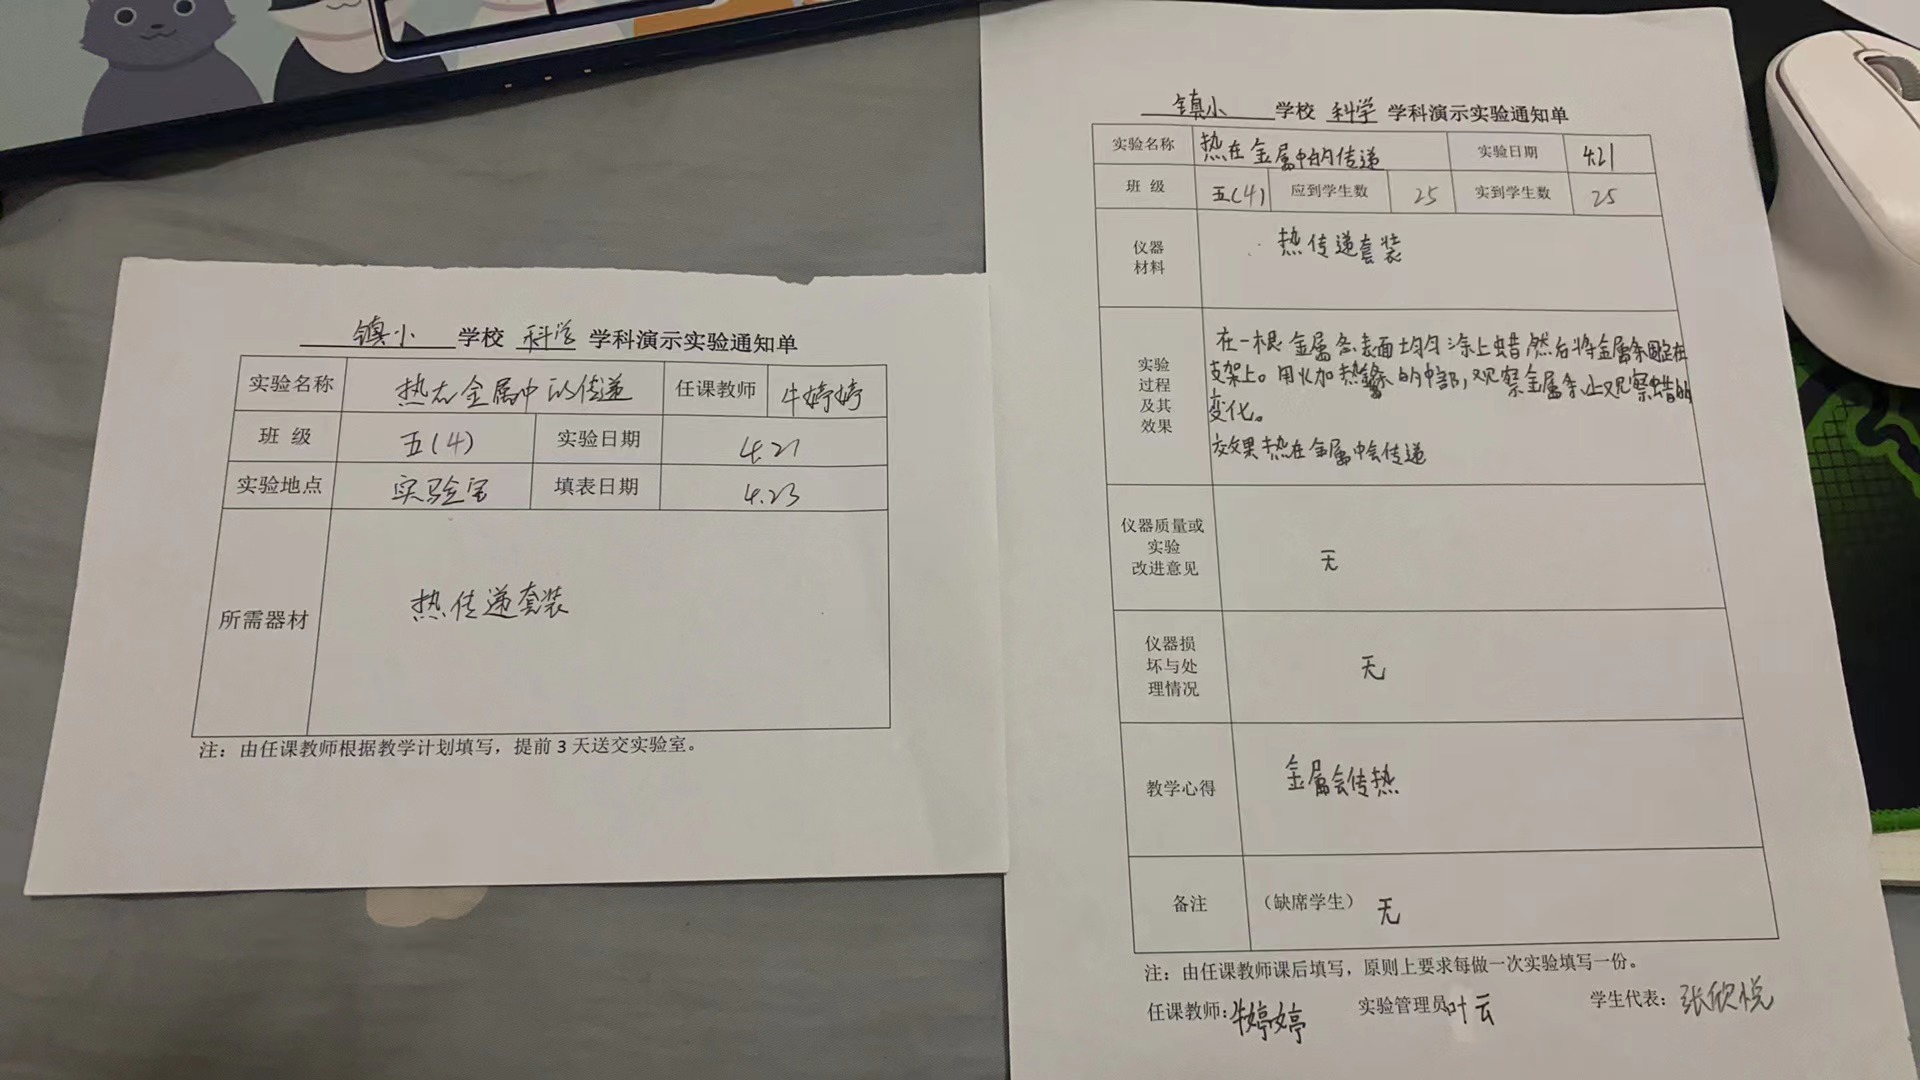 镇小 学校 科学 学科演示实验通知单
实验名称 热在金属中的传递 任课教师 牛婷婷
班 级 五(4) 实验日期 4.21
实验地点 实验室 填表日期 4.23
所需器材 热传递套装
注：由任课教师根据教学计划填写，提前 3 天送交实验室。
镇小 学校 科学 学科演示实验通知单
实验名称 热在金属中的传递 实验日期 4.21
班 级 五(4) 应到学生数 25 实到学生数 25
仪器
材料
热传递套装
实验
过程
及其
效果
在一根金属条表面均匀涂上蜡,然后将金属条固定在
支架上。用火加热金属条的中部,观察金属条上观察蜡的
变化。
效果热在金属中会传递
仪器质量或
实验
改进意见
无
仪器损
坏与处
理情况
无
教学心得 金属会传热
备注 （缺席学生） 无
注：由任课教师课后填写，原则上要求每做一次实验填写一份。
任课教师：牛婷婷 实验管理员 叶云 学生代表：张欣悦